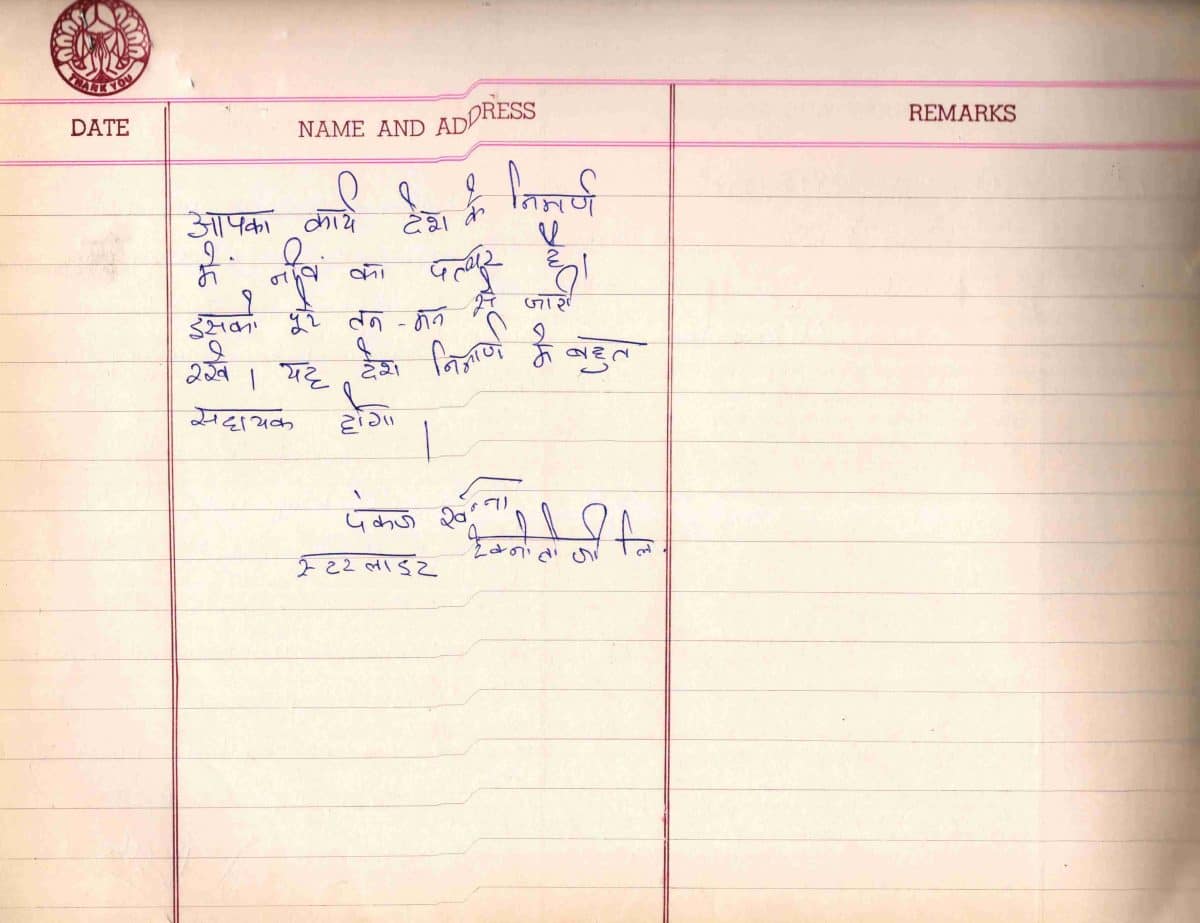 THANK YOU
DATE NAME AND ADDRESS REMARKS
आपका कार्य देश के निमार्ण
में नीवं का पत्थर है।
इसको पूरे तन-मन से जारी
रखे। यह देश निमार्ण मे बहुत
सहायक होगा।
पंकज खन्ना
स्टरलाइट टेक्नोलोजी लि.